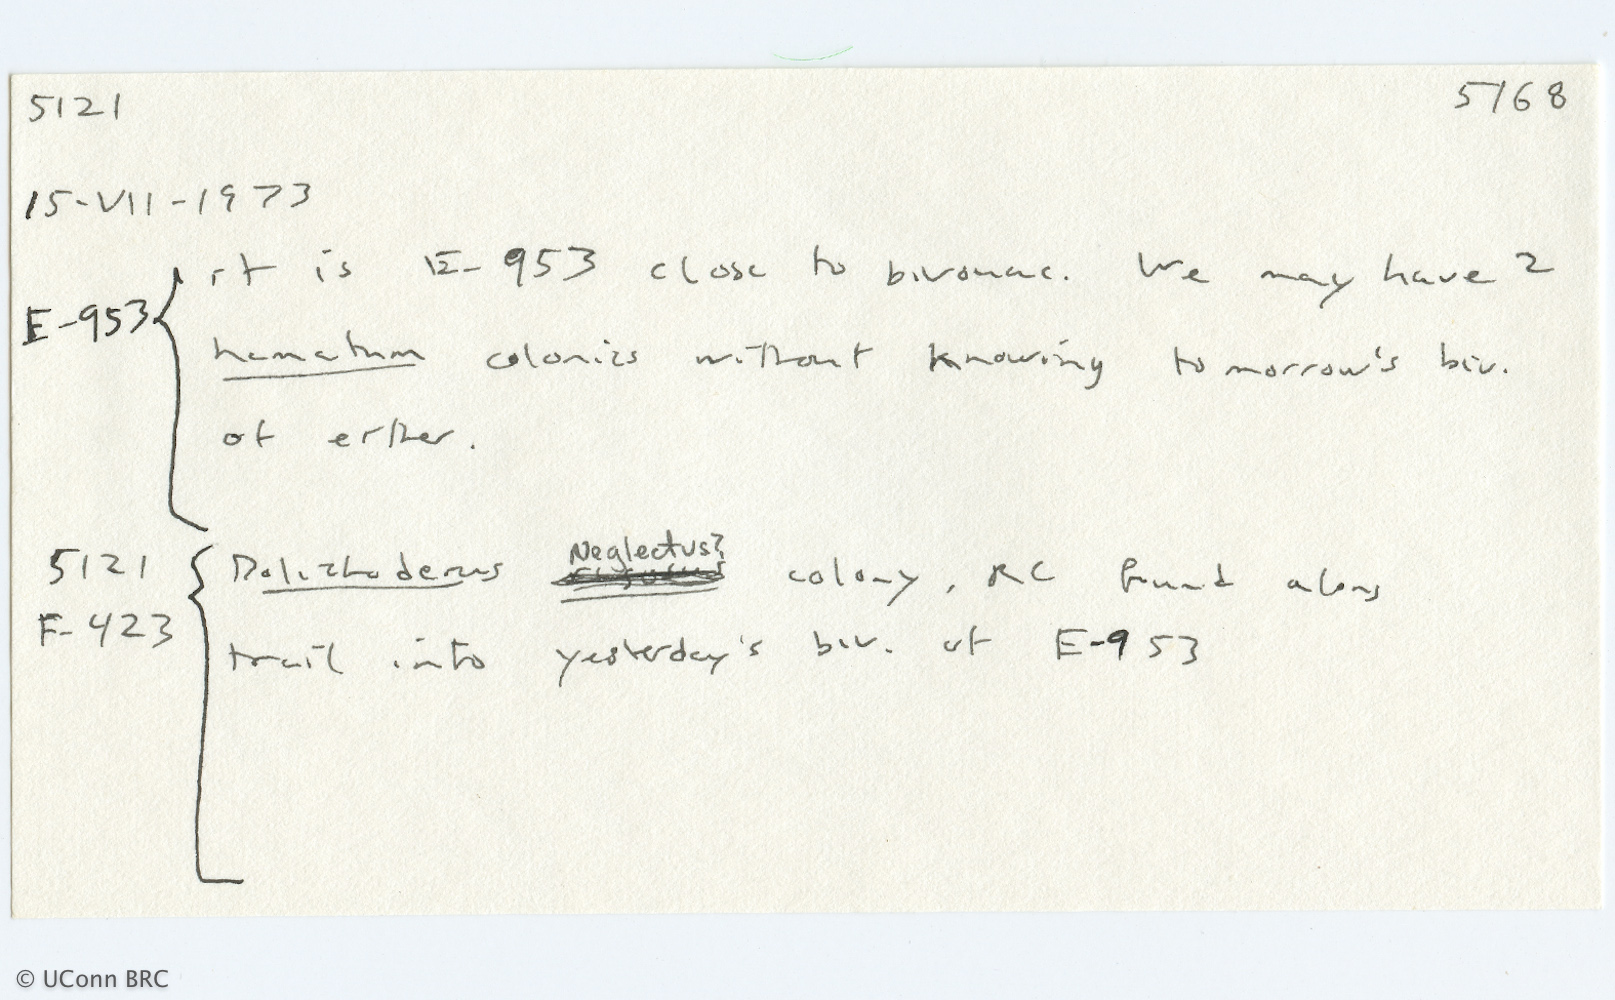 5121 5168
15-VII-1973
E-953 it is E-953 close to bivouac. We may have 2
hamatum colonies without knowing tomorrow's biv.
of either.
Neglectus?
5121 Dolichoderus colony, RC found along
F-423 trail into yesterday's biv. of E-953
© UConn BRC